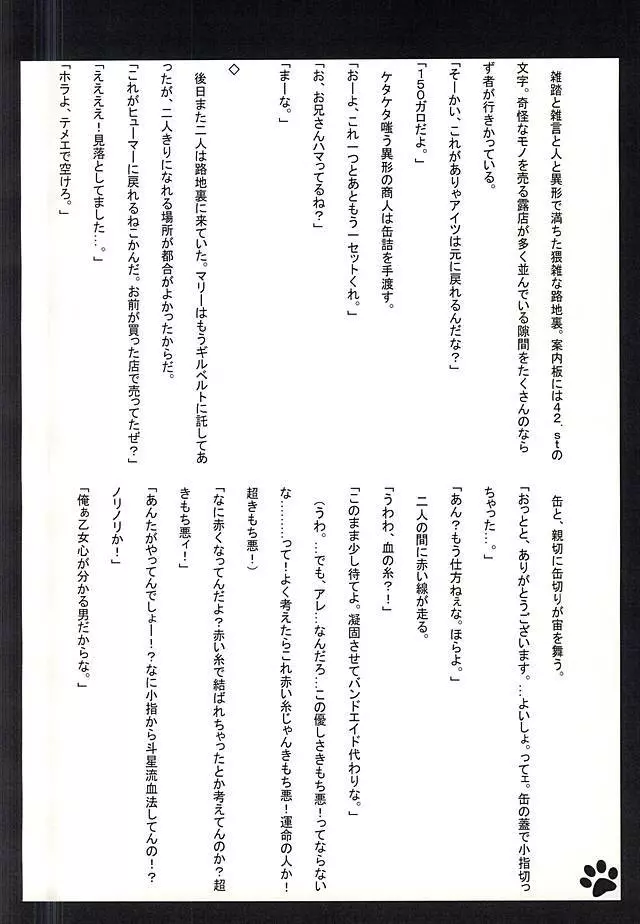 雑踏と雑言と人と異形で満ちた猥雑な路地裏。案内板には42.stの
文字。奇怪なモノを売る露店が多く並んでいる隙間をたくさんのなら
ず者が行きかっている。
「そーかい、これがありゃアイツは元に戻れるんだな?」
「150ガロだよ。」
ケタケタ嗤う異形の商人は缶詰を手渡す。
「おーよ、これ一つとあともう一セットくれ。」
「お、お兄さんハマってるね?」
「まーな。」
◇
後日また二人は路地裏に来ていた。マリーはもうギルベルトに託してあ
ったが、二人きりになれる場所が都合がよかったからだ。
「これがヒューマーに戻れるねこかんだ。お前が買った店で売ってたぜ?」
「ええええ!見落としてました…。」
「ホラよ、テメエで空けろ。」
缶と、親切に缶切りが宙を舞う。
「おっとと、ありがとうございます。…よいしょ。ってェ。缶の蓋で小指切っ
ちゃった…。」
「あん?もう仕方ねぇな。ほらよ。」
二人の間に赤い線が走る。
「うわわ、血の糸?!」
「このまま少し待てよ。凝固させてバンドエイド代わりな。」
(うわ。…でも、アレ…なんだろ…この優しさきもち悪!ってならない
な………って!よく考えたらこれ赤い糸じゃんきもち悪!運命の人か!
超きもち悪!)
「なに赤くなってんだよ?赤い糸で結ばれちゃったとか考えてんのか?超
きもち悪ィ!」
「あんたがやってんでしょー!?なに小指から斗星流血法してんの!?
ノリノリか!」
「俺ぁ乙女心が分かる男だからな。」